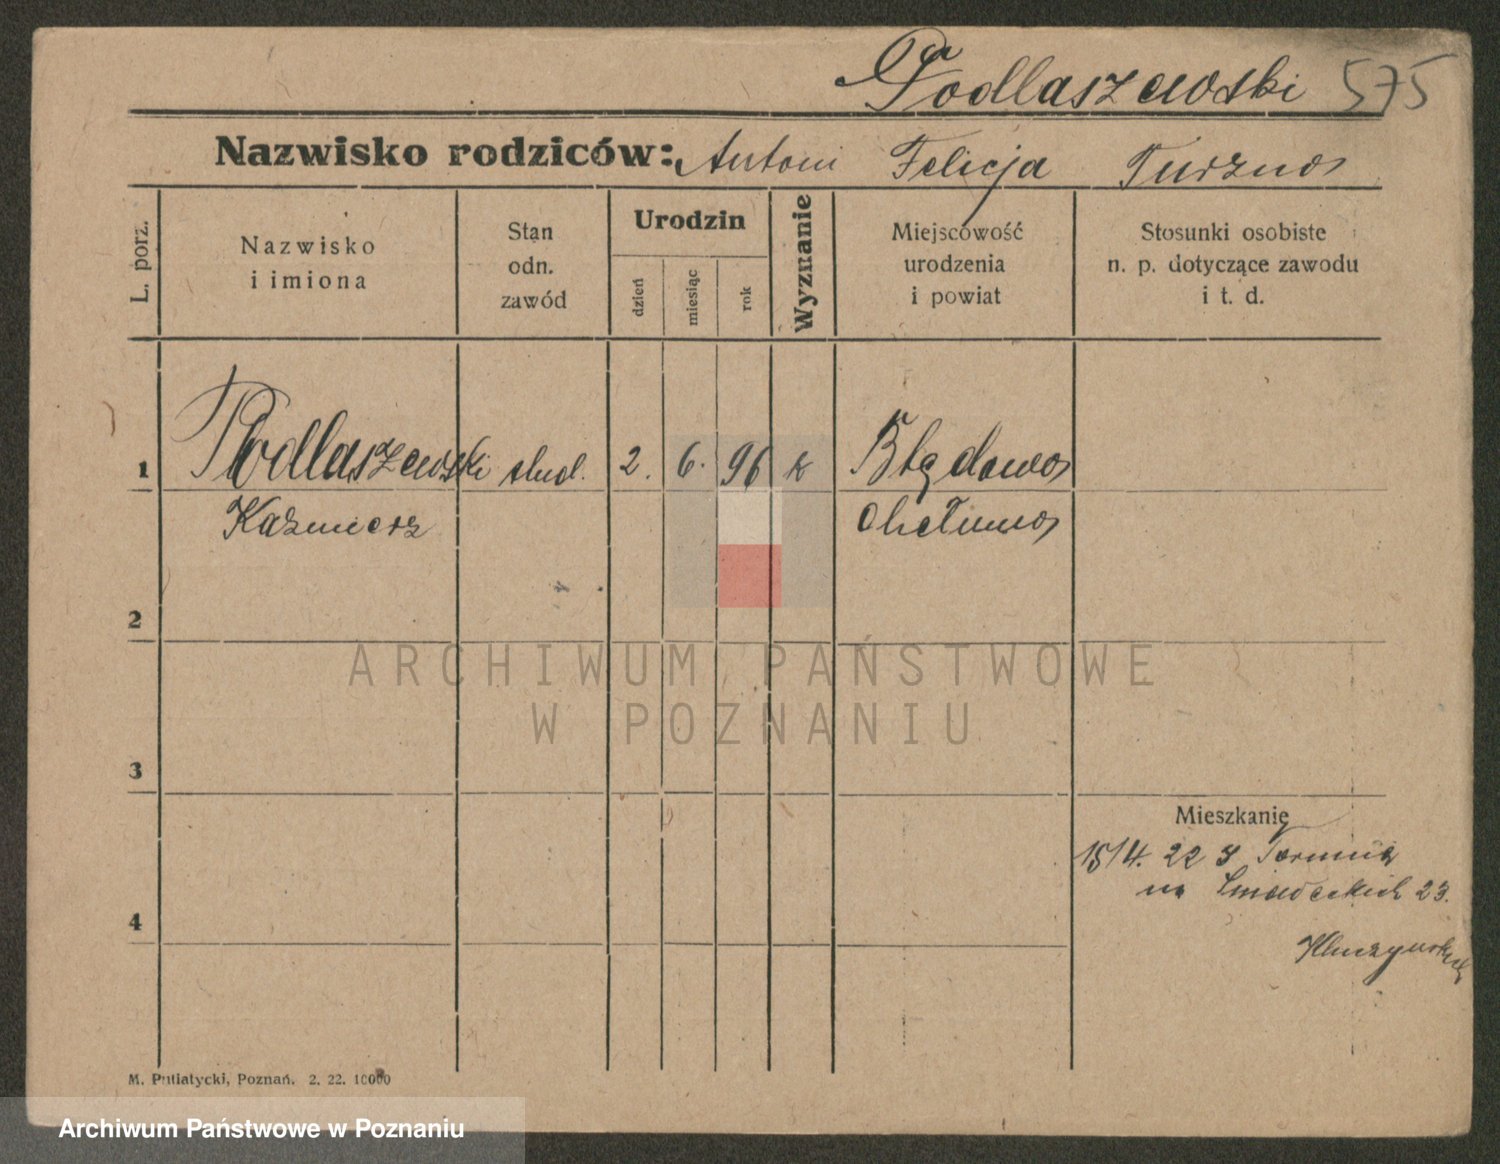 Podlaszewski 575
Nazwisko rodziców: Antoni Felicja Turzno
L. porz.
Nazwisko
i imiona
Stan
odn.
zawód
Urodzin
dzień
miesiąc
rok
Wyznanie
Miejscowość
urodzenia
i powiat
Stosunki osobiste
n. p. dotyczące zawodu
i t. d.
1 Podlaszewski stud. 2. 6. 96 k Błędowo
Kazimierz Chełmno
2
3
4
Mieszkanie
15/4. 22 z Torunia
na Śniadeckich 23.
M. Putiatycki, Poznań. 2. 22. 10000
ARCHIWUM PAŃSTWOWE
W POZNANIU
Archiwum Państwowe w Poznaniu